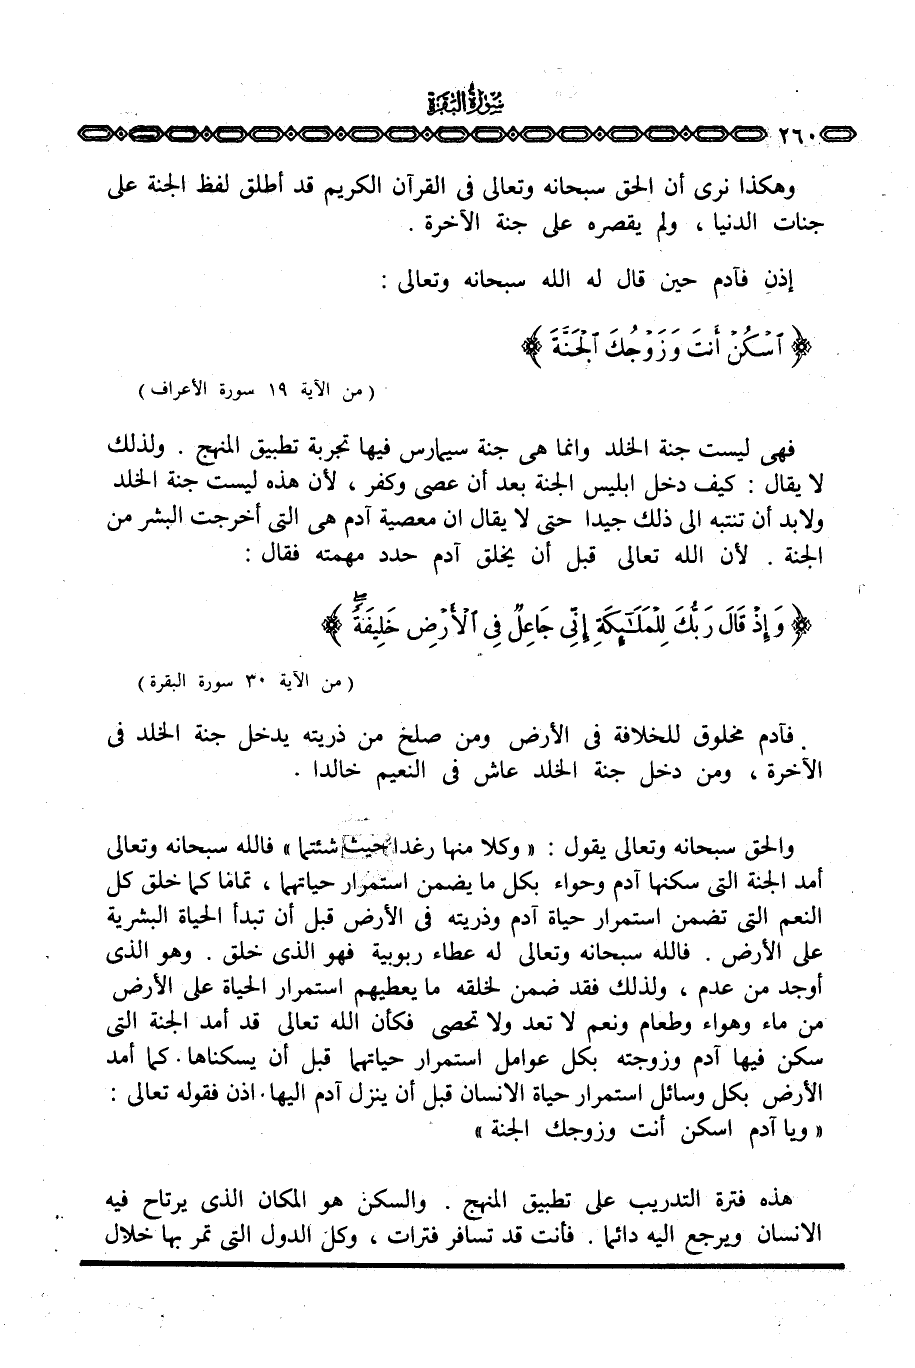 سورة البقرة
٢٦٠
وهكذا نرى أن الحق سبحانه وتعالى فى القرآن الكريم قد أطلق لفظ الجنة على
جنات الدنيا ، ولم يقصره على جنة الآخرة .
إذن فآدم حين قال له الله سبحانه وتعالى :
﴿ ٱسْكُنْ أَنتَ وَزَوْجُكَ ٱلْجَنَّةَ ﴾
( من الآية ١٩ سورة الأعراف )
فهى ليست جنة الخلد وانما هى جنة سيمارس فيها تجربة تطبيق المنهج . ولذلك
لا يقال : كيف دخل ابليس الجنة بعد أن عصى وكفر ، لأن هذه ليست جنة الخلد
ولابد أن تنتبه الى ذلك جيدا حتى لا يقال ان معصية آدم هى التى أخرجت البشر من
الجنة . لأن الله تعالى قبل أن يخلق آدم حدد مهمته فقال :
﴿ وَإِذْ قَالَ رَبُّكَ لِلْمَلَـٰٓئِكَةِ إِنِّى جَاعِلٌ فِى ٱلْأَرْضِ خَلِيفَةً ۖ ﴾
( من الآية ٣٠ سورة البقرة )
فآدم مخلوق للخلافة فى الأرض ومن صلح من ذريته يدخل جنة الخلد فى
الآخرة ، ومن دخل جنة الخلد عاش فى النعيم خالدا .
والحق سبحانه وتعالى يقول : « وكلا منها رغدا حيث شئتما » فالله سبحانه وتعالى
أمد الجنة التى سكنها آدم وحواء بكل ما يضمن استمرار حياتهما ، تماما كما خلق كل
النعم التى تضمن استمرار حياة آدم وذريته فى الأرض قبل أن تبدأ الحياة البشرية
على الأرض . فالله سبحانه وتعالى له عطاء ربوبية فهو الذى خلق . وهو الذى
أوجد من عدم ، ولذلك فقد ضمن لخلقه ما يعطيهم استمرار الحياة على الأرض
من ماء وهواء وطعام ونعم لا تعد ولا تحصى فكأن الله تعالى قد أمد الجنة التى
سكن فيها آدم وزوجته بكل عوامل استمرار حياتهما قبل أن يسكناها . كما أمد
الأرض بكل وسائل استمرار حياة الانسان قبل أن ينزل آدم اليها . اذن فقوله تعالى :
« ويا آدم اسكن أنت وزوجك الجنة »
هذه فترة التدريب على تطبيق المنهج . والسكن هو المكان الذى يرتاح فيه
الانسان ويرجع اليه دائما . فأنت قد تسافر فترات ، وكل الدول التى تمر بها خلال